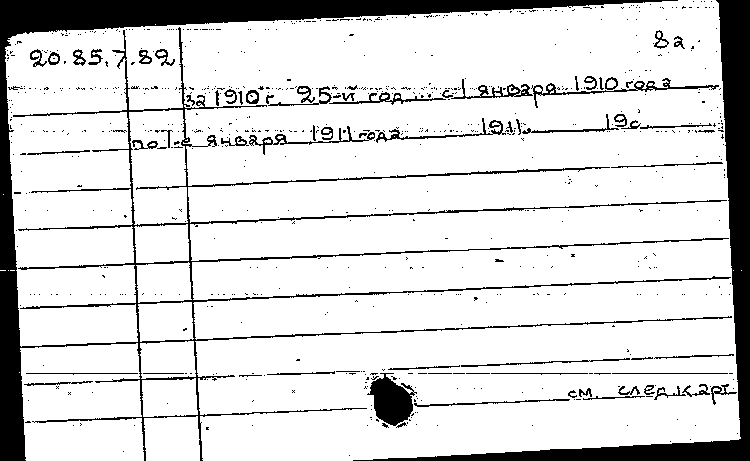 20.85.7.82 8а.
за 1910 г. 25-й год... с 1 января 1910 года
по 1-е января 1911 года 1911. 19с.
см. след. карт.